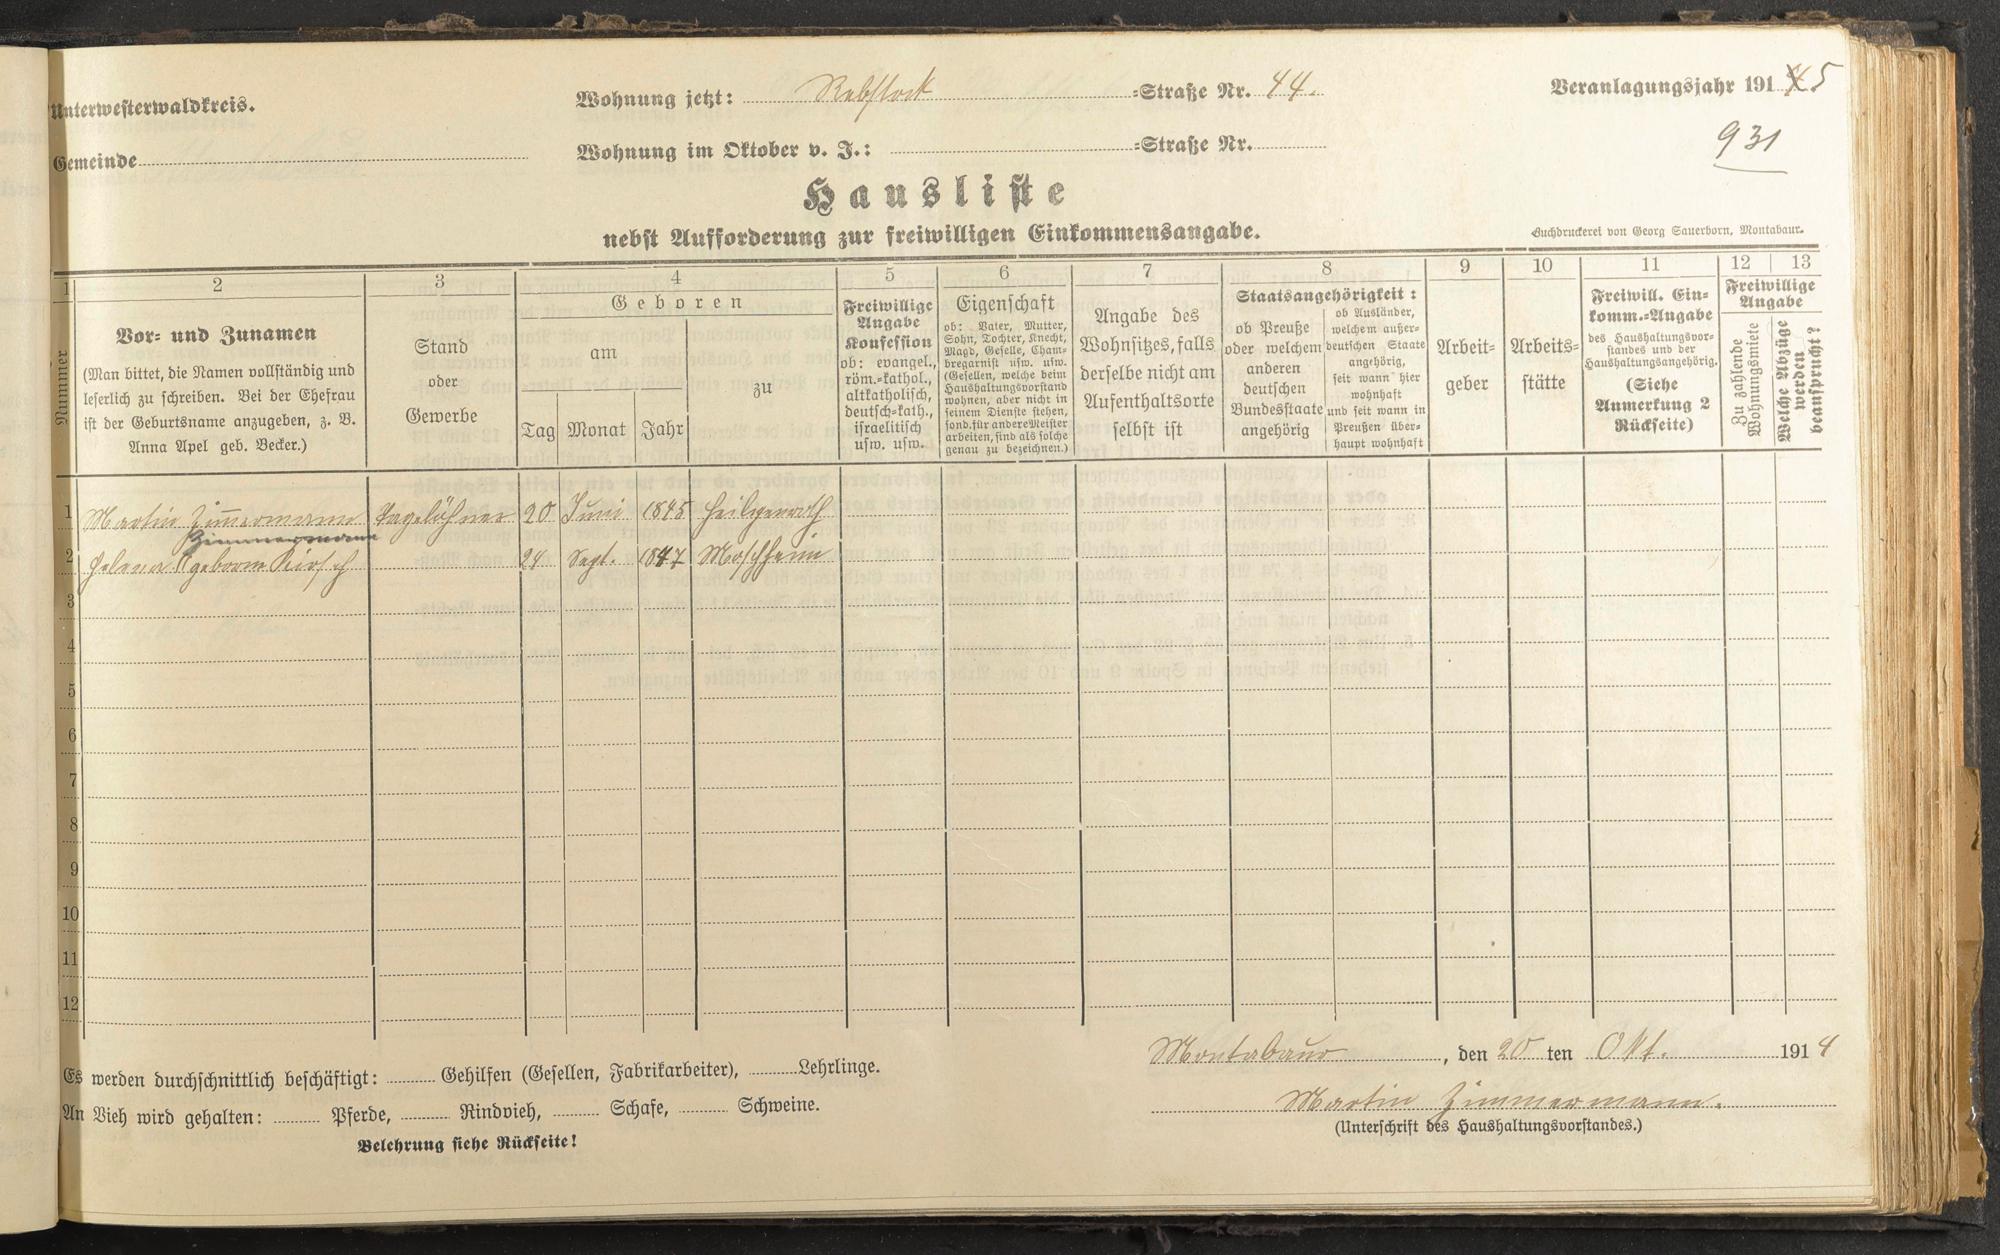 Unterwesterwaldkreis.
Gemeinde
Wohnung jetzt: Rebstock -Straße Nr. 44.
Wohnung im Oktober v. J.: -Straße Nr.
Veranlagungsjahr 191 5
931
Hausliste
nebst Aufforderung zur freiwilligen Einkommensangabe.
Buchdruckerei von Georg Sauerborn, Montabaur.
1 2 3 4 5 6 7 8 9 10 11 12 13
Nummer
Vor- und Zunamen
(Man bittet, die Namen vollständig und
leserlich zu schreiben. Bei der Ehefrau
ist der Geburtsname anzugeben, z. B.
Anna Apel geb. Becker.)
Stand
oder
Gewerbe
Geboren
am
Tag Monat Jahr
zu
Freiwillige
Angabe
Konfession
ob: evangel.,
röm.-kathol.,
altkatholisch,
deutsch-kath.,
israelitisch
usw. usw.
Eigenschaft
ob: Vater, Mutter,
Sohn, Tochter, Knecht,
Magd, Geselle, Cham-
bregarnist usw. usw.
(Gesellen, welche beim
Haushaltungsvorstand
wohnen, aber nicht in
seinem Dienste stehen,
sond. für andere Meister
arbeiten, sind als solche
genau zu bezeichnen.)
Angabe des
Wohnsitzes, falls
derselbe nicht am
Aufenthaltsorte
selbst ist
Staatsangehörigkeit:
ob Preuße
oder welchem
anderen
deutschen
Bundesstaate
angehörig
ob Ausländer,
welchem außer-
deutschen Staate
angehörig,
seit wann hier
wohnhaft
und seit wann in
Preußen über-
haupt wohnhaft
Arbeit-
geber
Arbeits-
stätte
Freiwill. Ein-
komm.-Angabe
des Haushaltungsvor-
standes und der
Haushaltungsangehörig.
(Siehe
Anmerkung 2
Rückseite)
Freiwillige
Angabe
Zu zahlende
Wohnungsmiete
Welche Abzüge
werden
beansprucht?
1 Martin Zimmermann Tagelöhner 20 Juni 1845 Heiligenroth
Zimmermann
2 Helena geborne Kirsch 24 Sept. 1847 Moschheim
3
4
5
6
7
8
9
10
11
12
Montabaur, den 20 ten Okt. 1914
Martin Zimmermann.
(Unterschrift des Haushaltungsvorstandes.)
Es werden durchschnittlich beschäftigt: Gehilfen (Gesellen, Fabrikarbeiter), Lehrlinge.
An Vieh wird gehalten: Pferde, Rindvieh, Schafe, Schweine.
Belehrung siehe Rückseite!